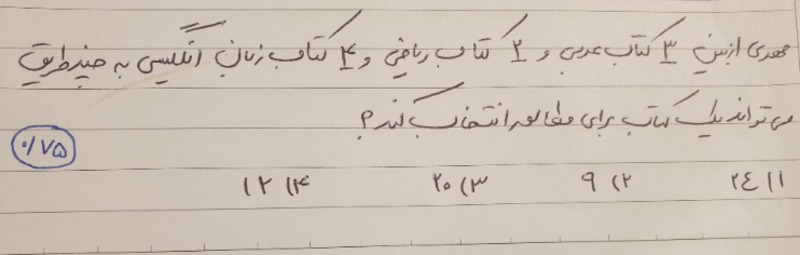 مهدی از بین ۳ کتاب عربی و ۲ کتاب ریاضی و ۴ کتاب زبان انگلیسی به چند طریق
می تواند یک کتاب برای مطالعه انتخاب کند؟
۰/۷۵
۱) ۲۴ ۲) ۹ ۳) ۲۰ ۴) ۱۲